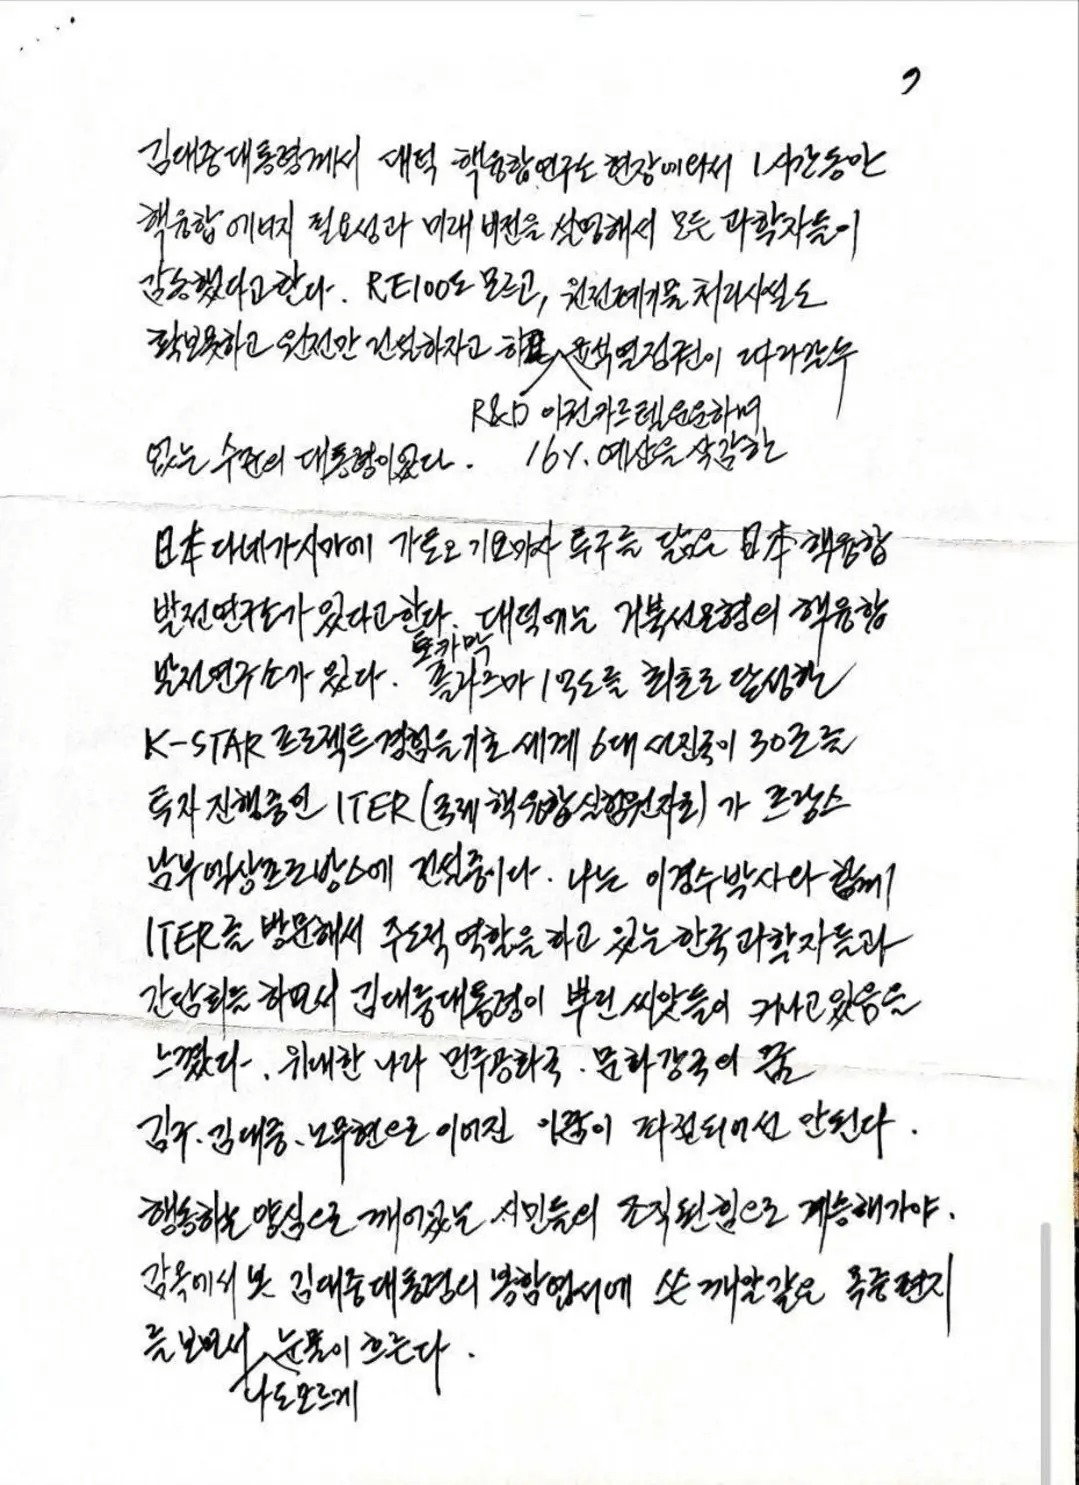 7
김대중대통령께서 대덕 핵융합연구소 현장에와서 1시간동안
핵융합 에너지 필요성과 미래 비전을 설명해서 모든 과학자들이
감동했다고한다. RE100도 모르고, 원전폐기물 처리시설도
확보못하고 원전만 건설하자고 하는 윤석열정권이 따라갈수
R&D 이권카르텔 운운하며
16%. 예산을 삭감한
없는 수준의 대통령이었다.
日本 다네가시마에 가토오 기요마사 투구를 닮은 日本 핵융합
발전연구소가 있다고한다. 대덕에는 거북선모형의 핵융합
토카막
발전연구소가 있다. 플라즈마 1억도를 최초로 달성한
K-STAR 프로젝트경험을기초 세계 6대 선진국이 30조를
투자 진행중인 ITER (국제핵융합실험원자로)가 프랑스
남부 프로방스에 건설중이다. 나는 이경수박사와 함께
ITER를 방문해서 주도적 역할을 하고 있는 한국과학자들과
간담회를 하면서 김대중대통령이 뿌린 씨앗들이 커나고있음을
느꼈다. 위대한 나라 민주공화국. 문화강국의 꿈
김구. 김대중. 노무현으로 이어진 이 꿈이 좌절되어선 안된다.
행동하는 양심으로 깨어있는 시민들의 조직된힘으로 계승해가야.
감옥에서 본 김대중대통령의 봉함엽서에 쓴 깨알같은 옥중편지
를보면서 눈물이 흐른다.
나도모르게